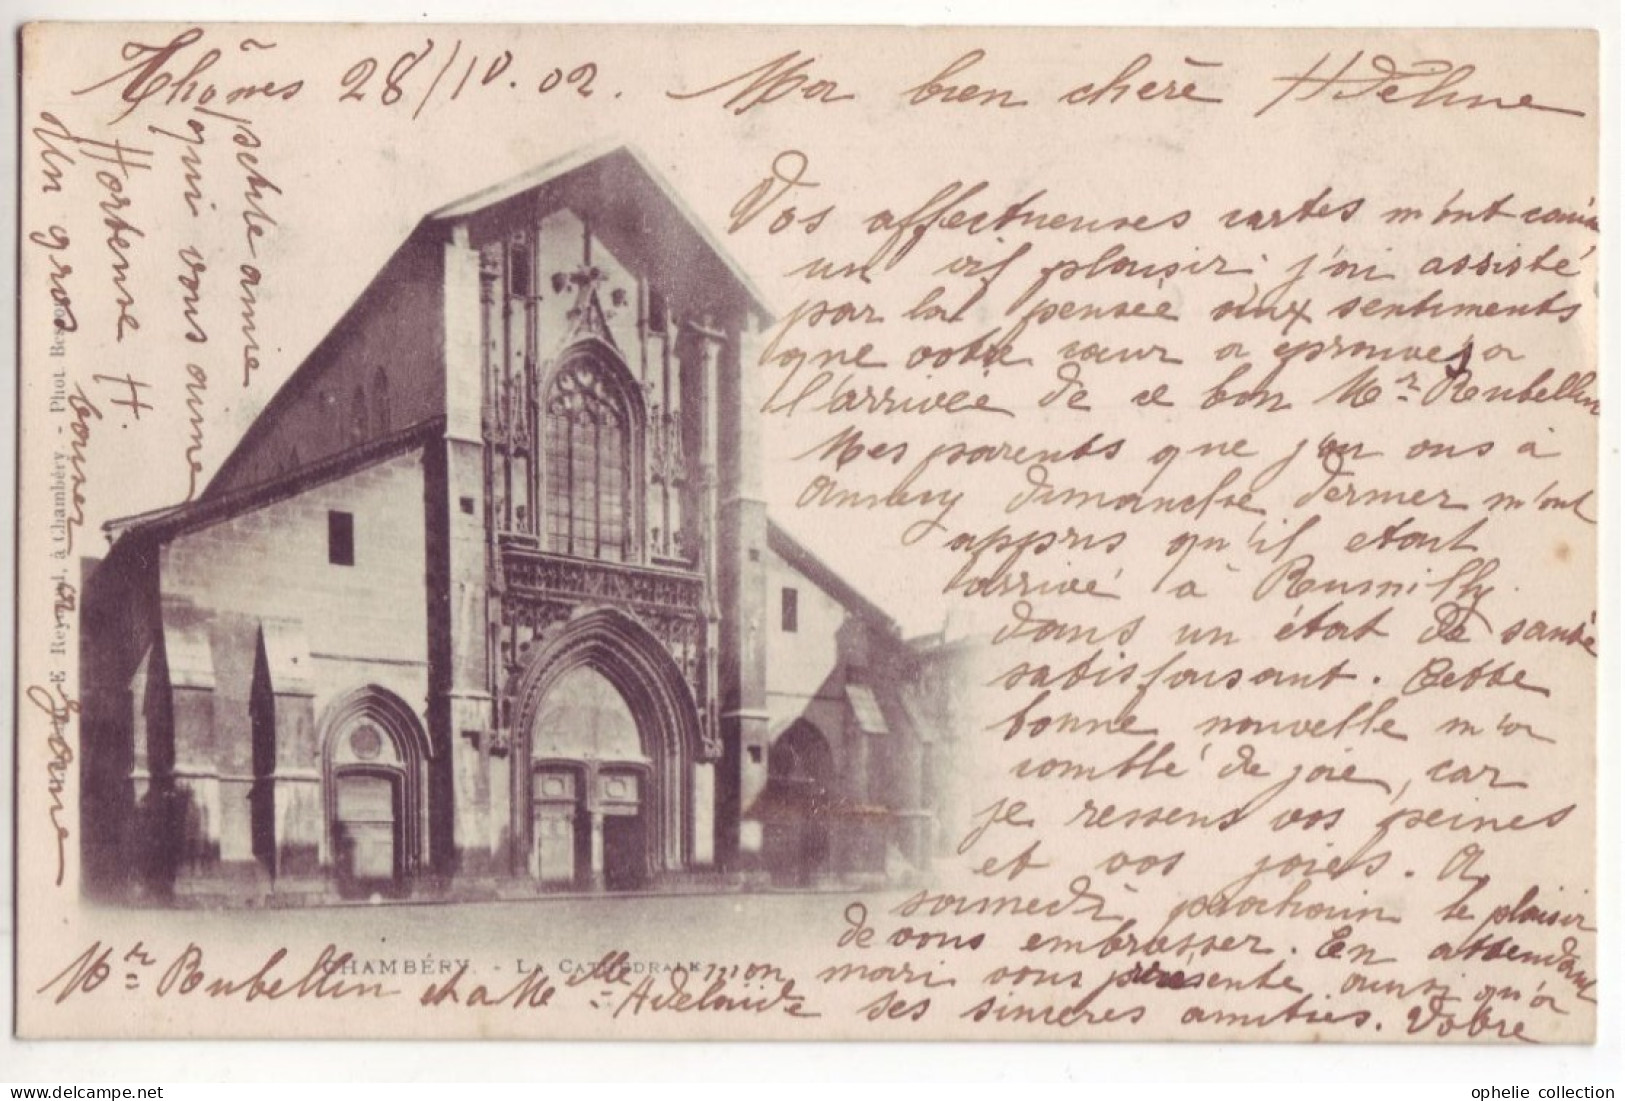 Thônes 28/10.02. Ma bien chère Hélène
Vos affectueuses cartes m'ont causé
un vif plaisir; j'ai assisté
par la pensée aux sentiments
que votre cœur a éprouvés à
l'arrivée de ce bon Mr Rubellin
Mes parents que j'ai vus à
Annecy dimanche dernier m'ont
appris qu'il était
arrivé à Rumilly
dans un état de santé
satisfaisant. Cette
bonne nouvelle m'a
comblé de joie, car
je ressens vos peines
et vos joies. A
samedi prochain le plaisir
de vous embrasser. En attendant
mon mari vous présente ainsi qu'à
Mr Rubellin et à Melle Adélaïde ses sincères amitiés. Votre
petite amie
qui vous aime
Hortense H.
Un gros baiser à Jeanne
CHAMBÉRY. - LA CATHÉDRALE
E. Reynaud, à Chambéry. - Phot.
ophelie collection